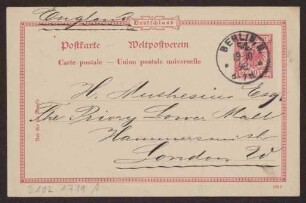 England
Deutschland
Postkarte – Weltpostverein
Carte postale – Union postale universelle
BERLIN, W.
H. Muthesius Esqr
The Priory Lower Mall
Hammersmith
London W